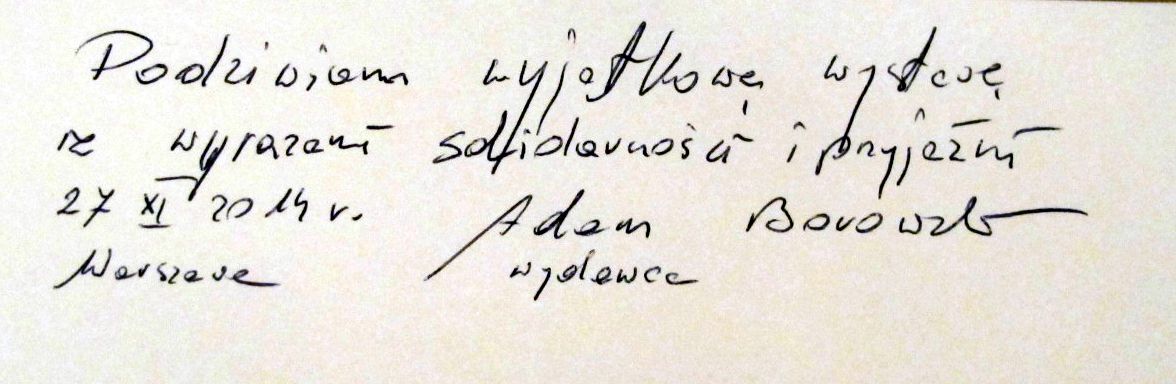 Podziwiam wyjątkową wystawę
z wyrazami solidarności i przyjaźni
27 XI 2014 r. Adam Borowski
Warszawa wydawca